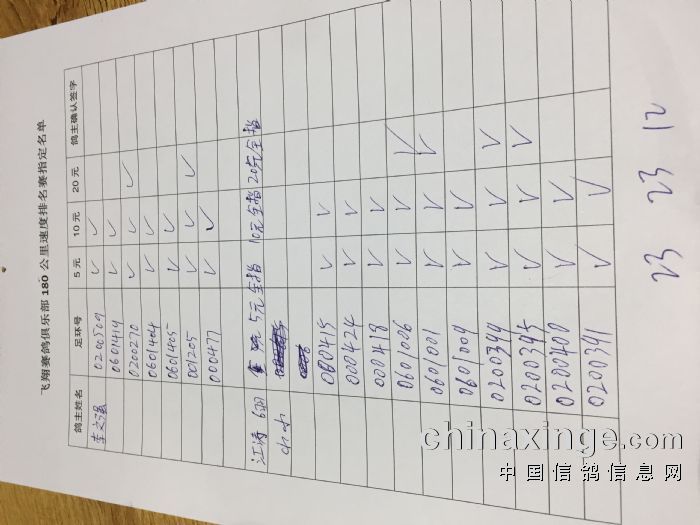 飞翔赛鸽俱乐部 180 公里速度排名赛指定名单
鸽主姓名 足环号 5 元 10 元 20 元 鸽主确认签字
李文强 0200509 ✓ ✓
0601414 ✓ ✓
0200270 ✓ ✓ ✓
0601404 ✓ ✓
0601405 ✓ ✓
001205 ✓ ✓ ✓
000477 ✓ ✓
江涛 6羽 5元全指 10元全指 20元全指
000415 ✓ ✓
000424 ✓ ✓
000418 ✓ ✓
0601006 ✓ ✓ ✓
0601001 ✓ ✓ ✓
0601009 ✓ ✓
0200399 ✓ ✓ ✓
0200395 ✓ ✓ ✓
0200400 ✓ ✓
0200391 ✓ ✓
23 23 12
chinaxinge.com
中国信鸽信息网